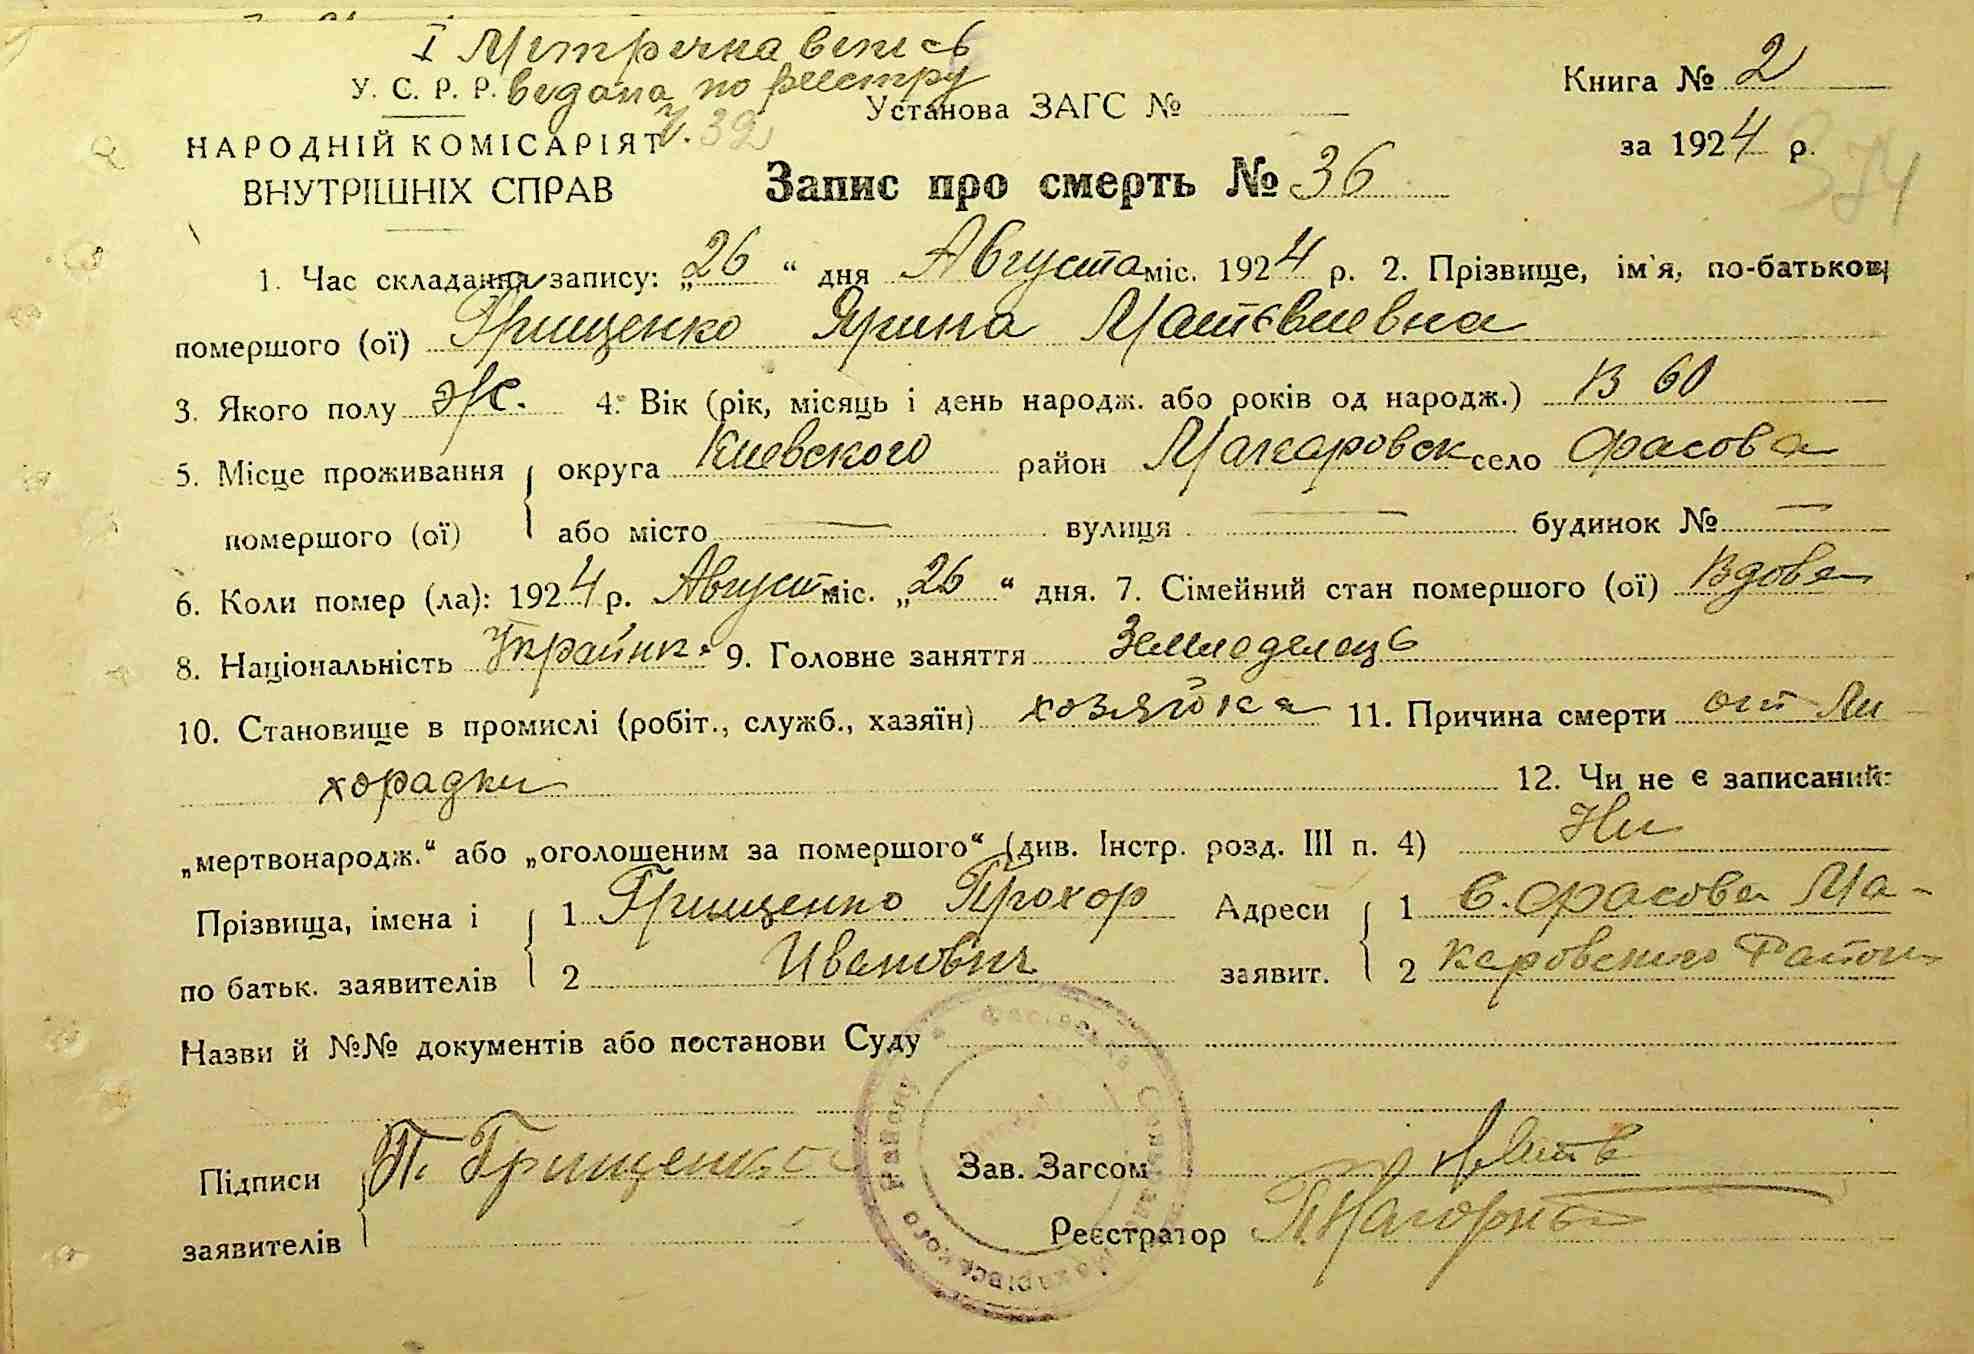 I Метрична випись
У. С. Р. Р. видана по реестру
Установа ЗАГС №
Книга № 2
НАРОДНІЙ КОМІСАРІЯТ Ч. 32
за 1924 р. 374
ВНУТРІШНІХ СПРАВ
Запис про смерть № 36
1. Час складання запису: „26“ дня Августа міс. 1924 р. 2. Прізвище, ім'я, по-батькові
помершого (ої) Грищенко Ярина Матвиевна
3. Якого полу Ж. 4. Вік (рік, місяць і день народж. або років од народж.) В 60
5. Місце проживання { округа Киевского район Макаровск село Фасова
помершого (ої) або місто — вулиця — будинок № —
6. Коли помер (ла): 1924 р. Август міс. „26“ дня. 7. Сімейний стан помершого (ої) Вдова
8. Національність Украйнк. 9. Головне заняття Земледелець
10. Становище в промислі (робіт., служб., хазяїн) хозяйка 11. Причина смерти от Ли
хорадки 12. Чи не є записаний:
„мертвонародж.“ або „оголошеним за помершого“ (див. Інстр. розд. III п. 4) Ни
Прізвища, імена і { 1 Грищенко Прохор Адреси { 1 С. Фасова Ма-
по батьк. заявителів 2 Иванович заявит. 2 каровского Район
Назви й №№ документів або постанови Суду
Підписи { П. Грищенко Зав. Загсом
заявителів Реєстратор П Нагорный
Фасівська Макарівського Району